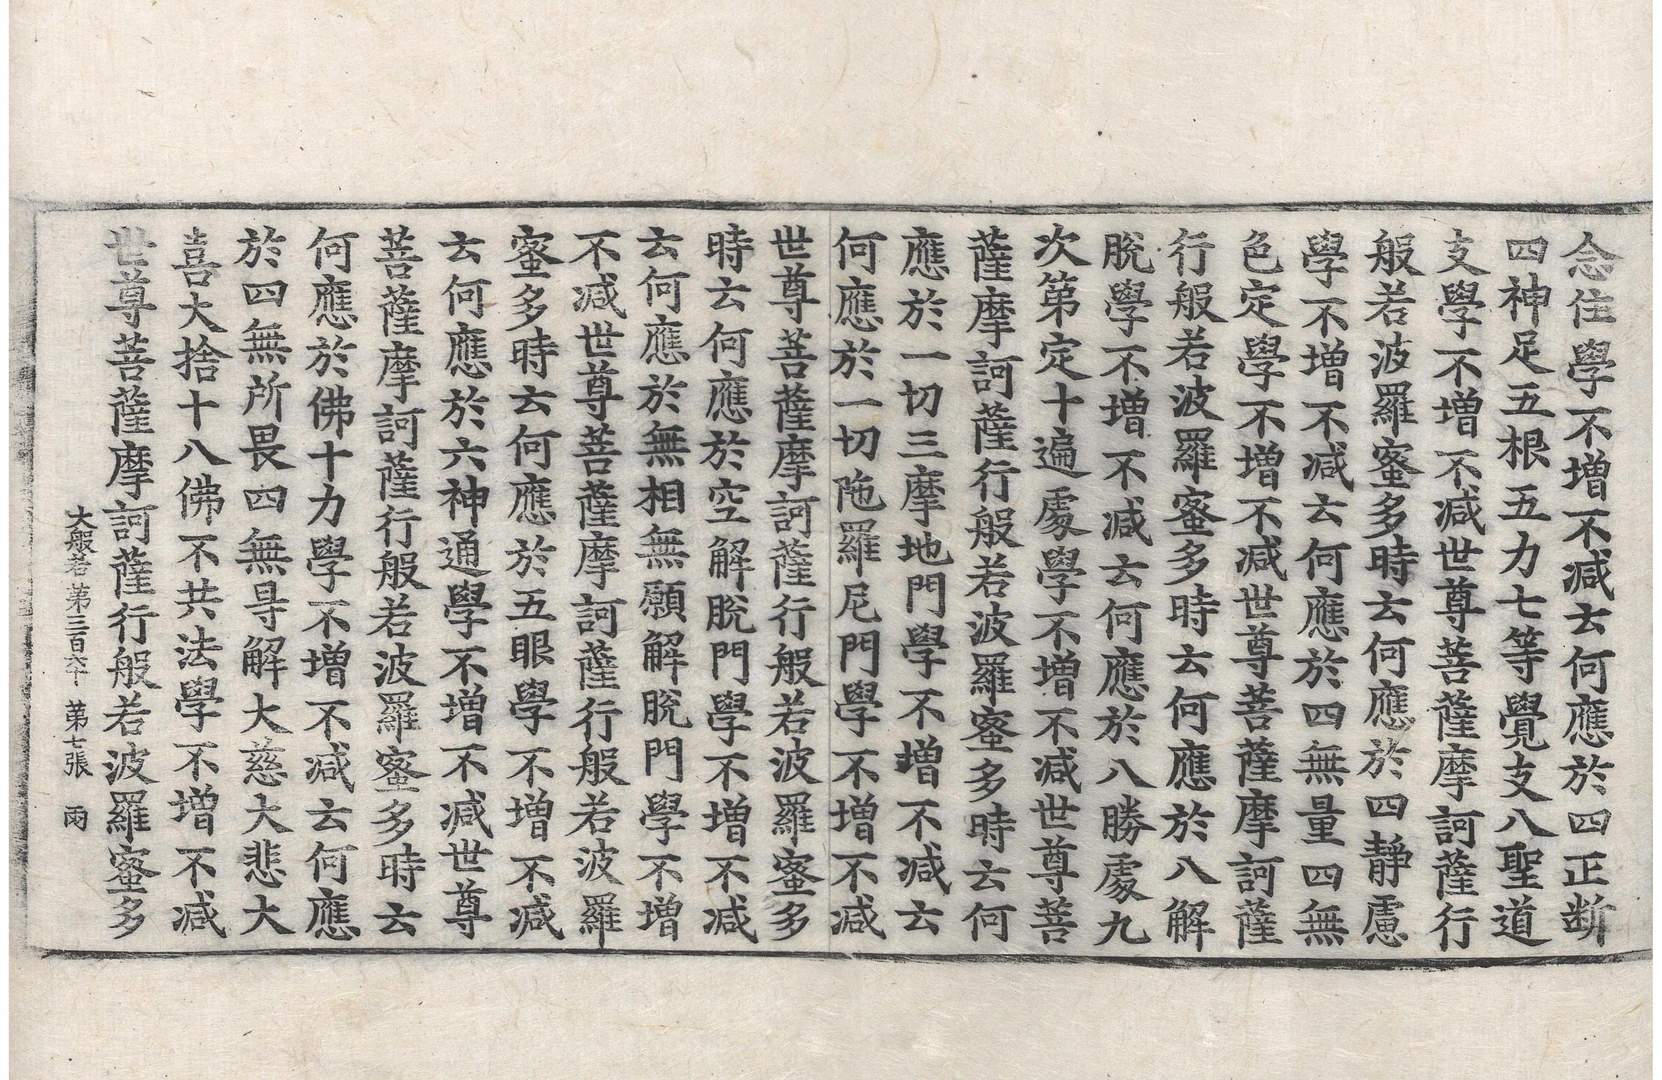 念住學不增不減云何應於四正断
四神足五根五力七等覺支八聖道
支學不增不減世尊菩薩摩訶薩行
般若波羅蜜多時云何應於四靜慮
學不增不減云何應於四無量四無
色定學不增不減世尊菩薩摩訶薩
行般若波羅蜜多時云何應於八解
脫學不增不減云何應於八勝處九
次第定十遍處學不增不減世尊菩
薩摩訶薩行般若波羅蜜多時云何
應於一切三摩地門學不增不減云
何應於一切陁羅尼門學不增不減
世尊菩薩摩訶薩行般若波羅蜜多
時云何應於空解脫門學不增不減
云何應於無相無願解脫門學不增
不減世尊菩薩摩訶薩行般若波羅
蜜多時云何應於五眼學不增不減
云何應於六神通學不增不減世尊
菩薩摩訶薩行般若波羅蜜多時云
何應於佛十力學不增不減云何應
於四無所畏四無㝵解大慈大悲大
喜大捨十八佛不共法學不增不減
世尊菩薩摩訶薩行般若波羅蜜多
大般若第三百六十 第七張 雨